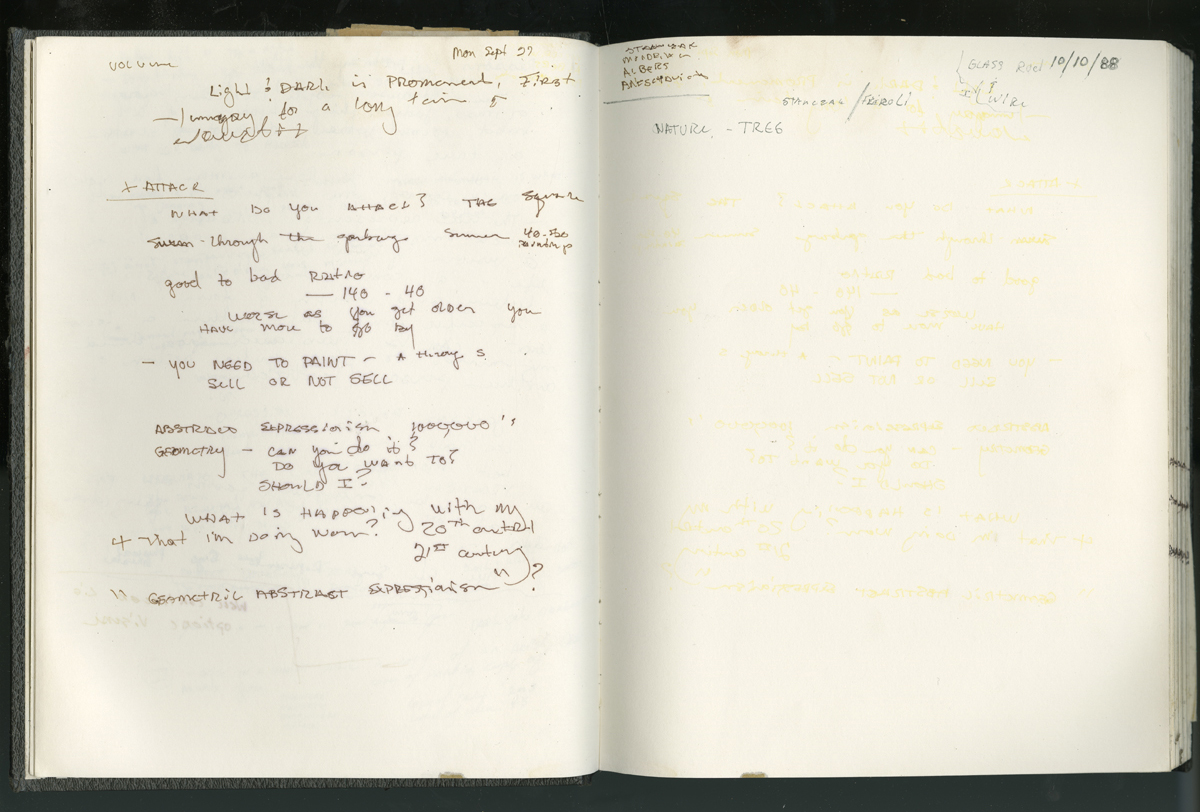 VOLUME
Mon Sept 27
Light & DARK is Promenent, First
for a long
+ ATTACK
WHAT DO YOU ATTACK? THE Square
through the garbage Summer 40-50
paintings
good to bad Ratio
— 140 - 40
WORSE as you get older you
HAVE more to go by
— YOU NEED TO PAINT — A things
SELL OR NOT SELL
ABSTRACT EXPRESSIONISM
GEOMETRY — CAN you do it?
DO YOU WANT TO?
SHOULD I?
WHAT IS HAPPENING with my
+ that i'm doing work? 20TH
21ST century
" GEOMETRIC ABSTRACT EXPRESSIONISM " ?
ALBERS
GLASS Rod 10/10/88
& WIRE
NATURE - TREE